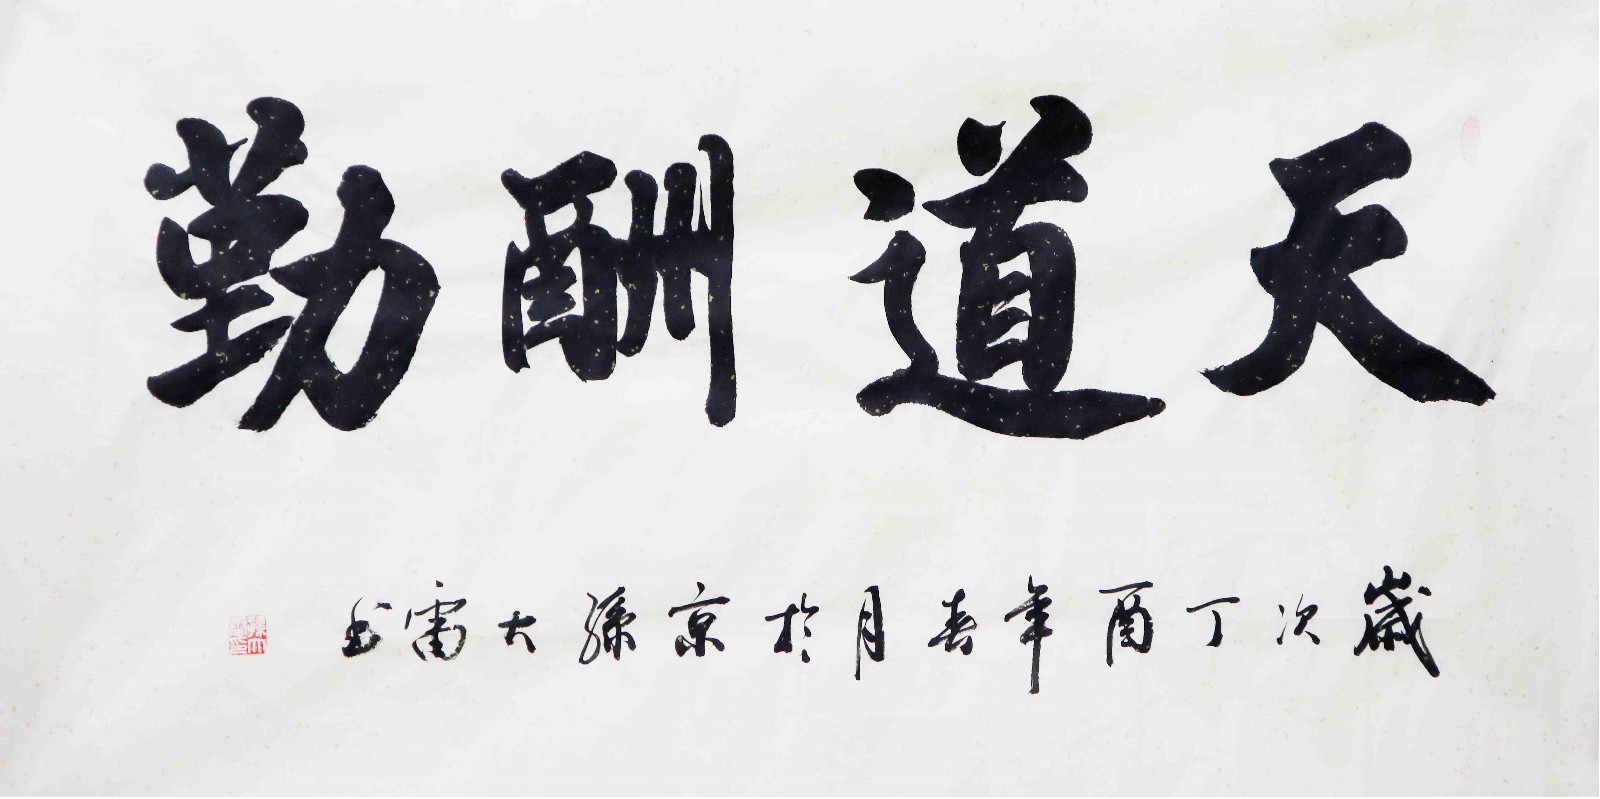 天道酬勤
歲次丁酉年春月於京孫大雷书